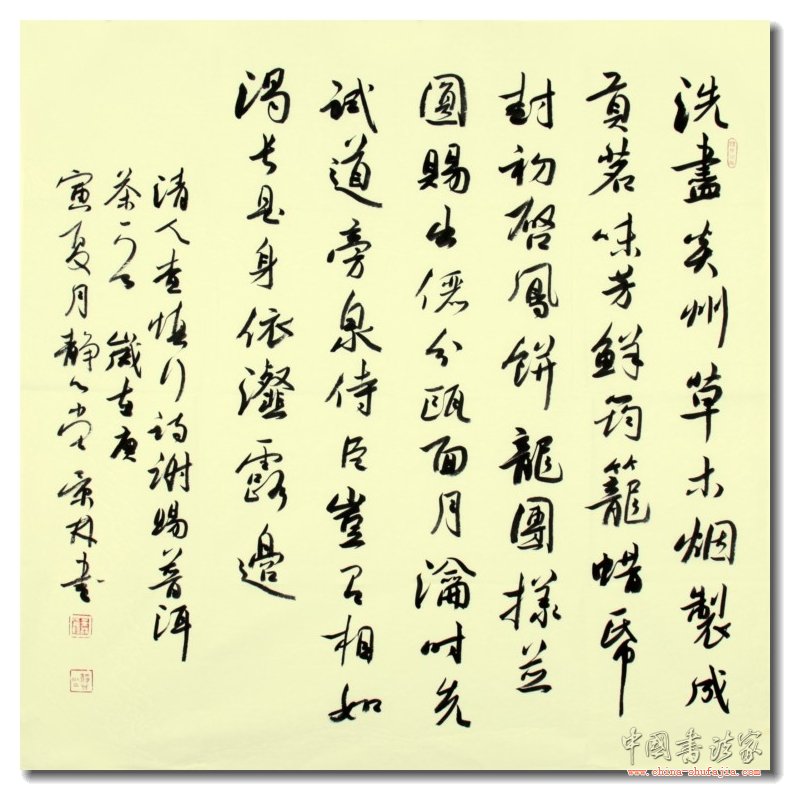 洗盡炎州草木烟製成
貢茗味芳鮮筠籠蜡帋
封初啓鳳餅龍團樣並
圓賜出儼分甌面月瀹时先
試道旁泉侍臣豈有相如
渴長是身依瀣露邊
清人查慎行诗谢賜普洱
茶一首 歲在庚
寅夏月静心堂景林書
中國书法家
www.china-shufajia.com